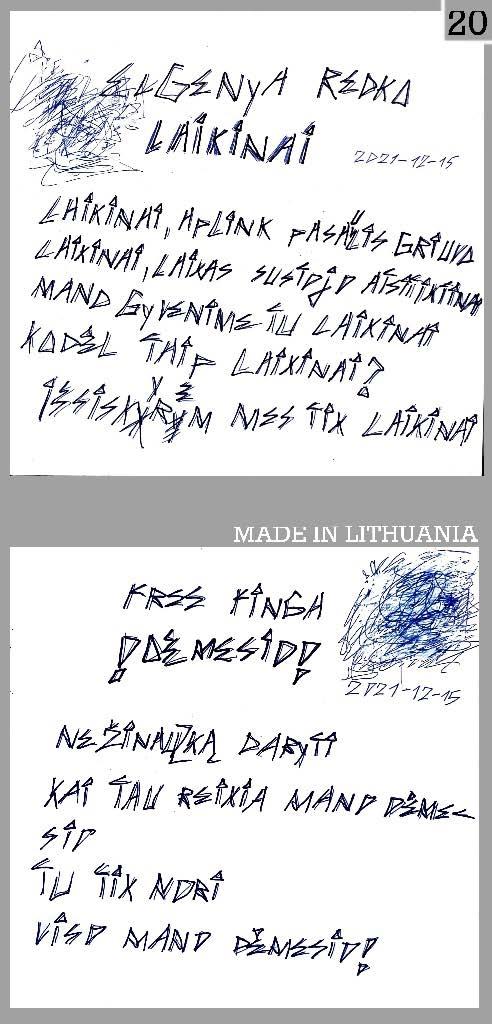 20
EVGENYA REDKO
LAIKINAI
2021-12-15
LAIKINAI, APLINK PASAULIS GRIUVO
LAIKINAI, LAIKAS SUSTOJO
MANO GYVENIME TU LAIKINAI
KODĖL TAIP LAIKINAI?
IŠSISKYRĖM MES TIK LAIKINAI
MADE IN LITHUANIA
FREE FINGA
!DĖMESIO!
2021-12-15
NEŽINAU KĄ DARYTI
KAI TAU REIKIA MANO DĖME-
SIO
TU TIK NORI
VISO MANO DĖMESIO!